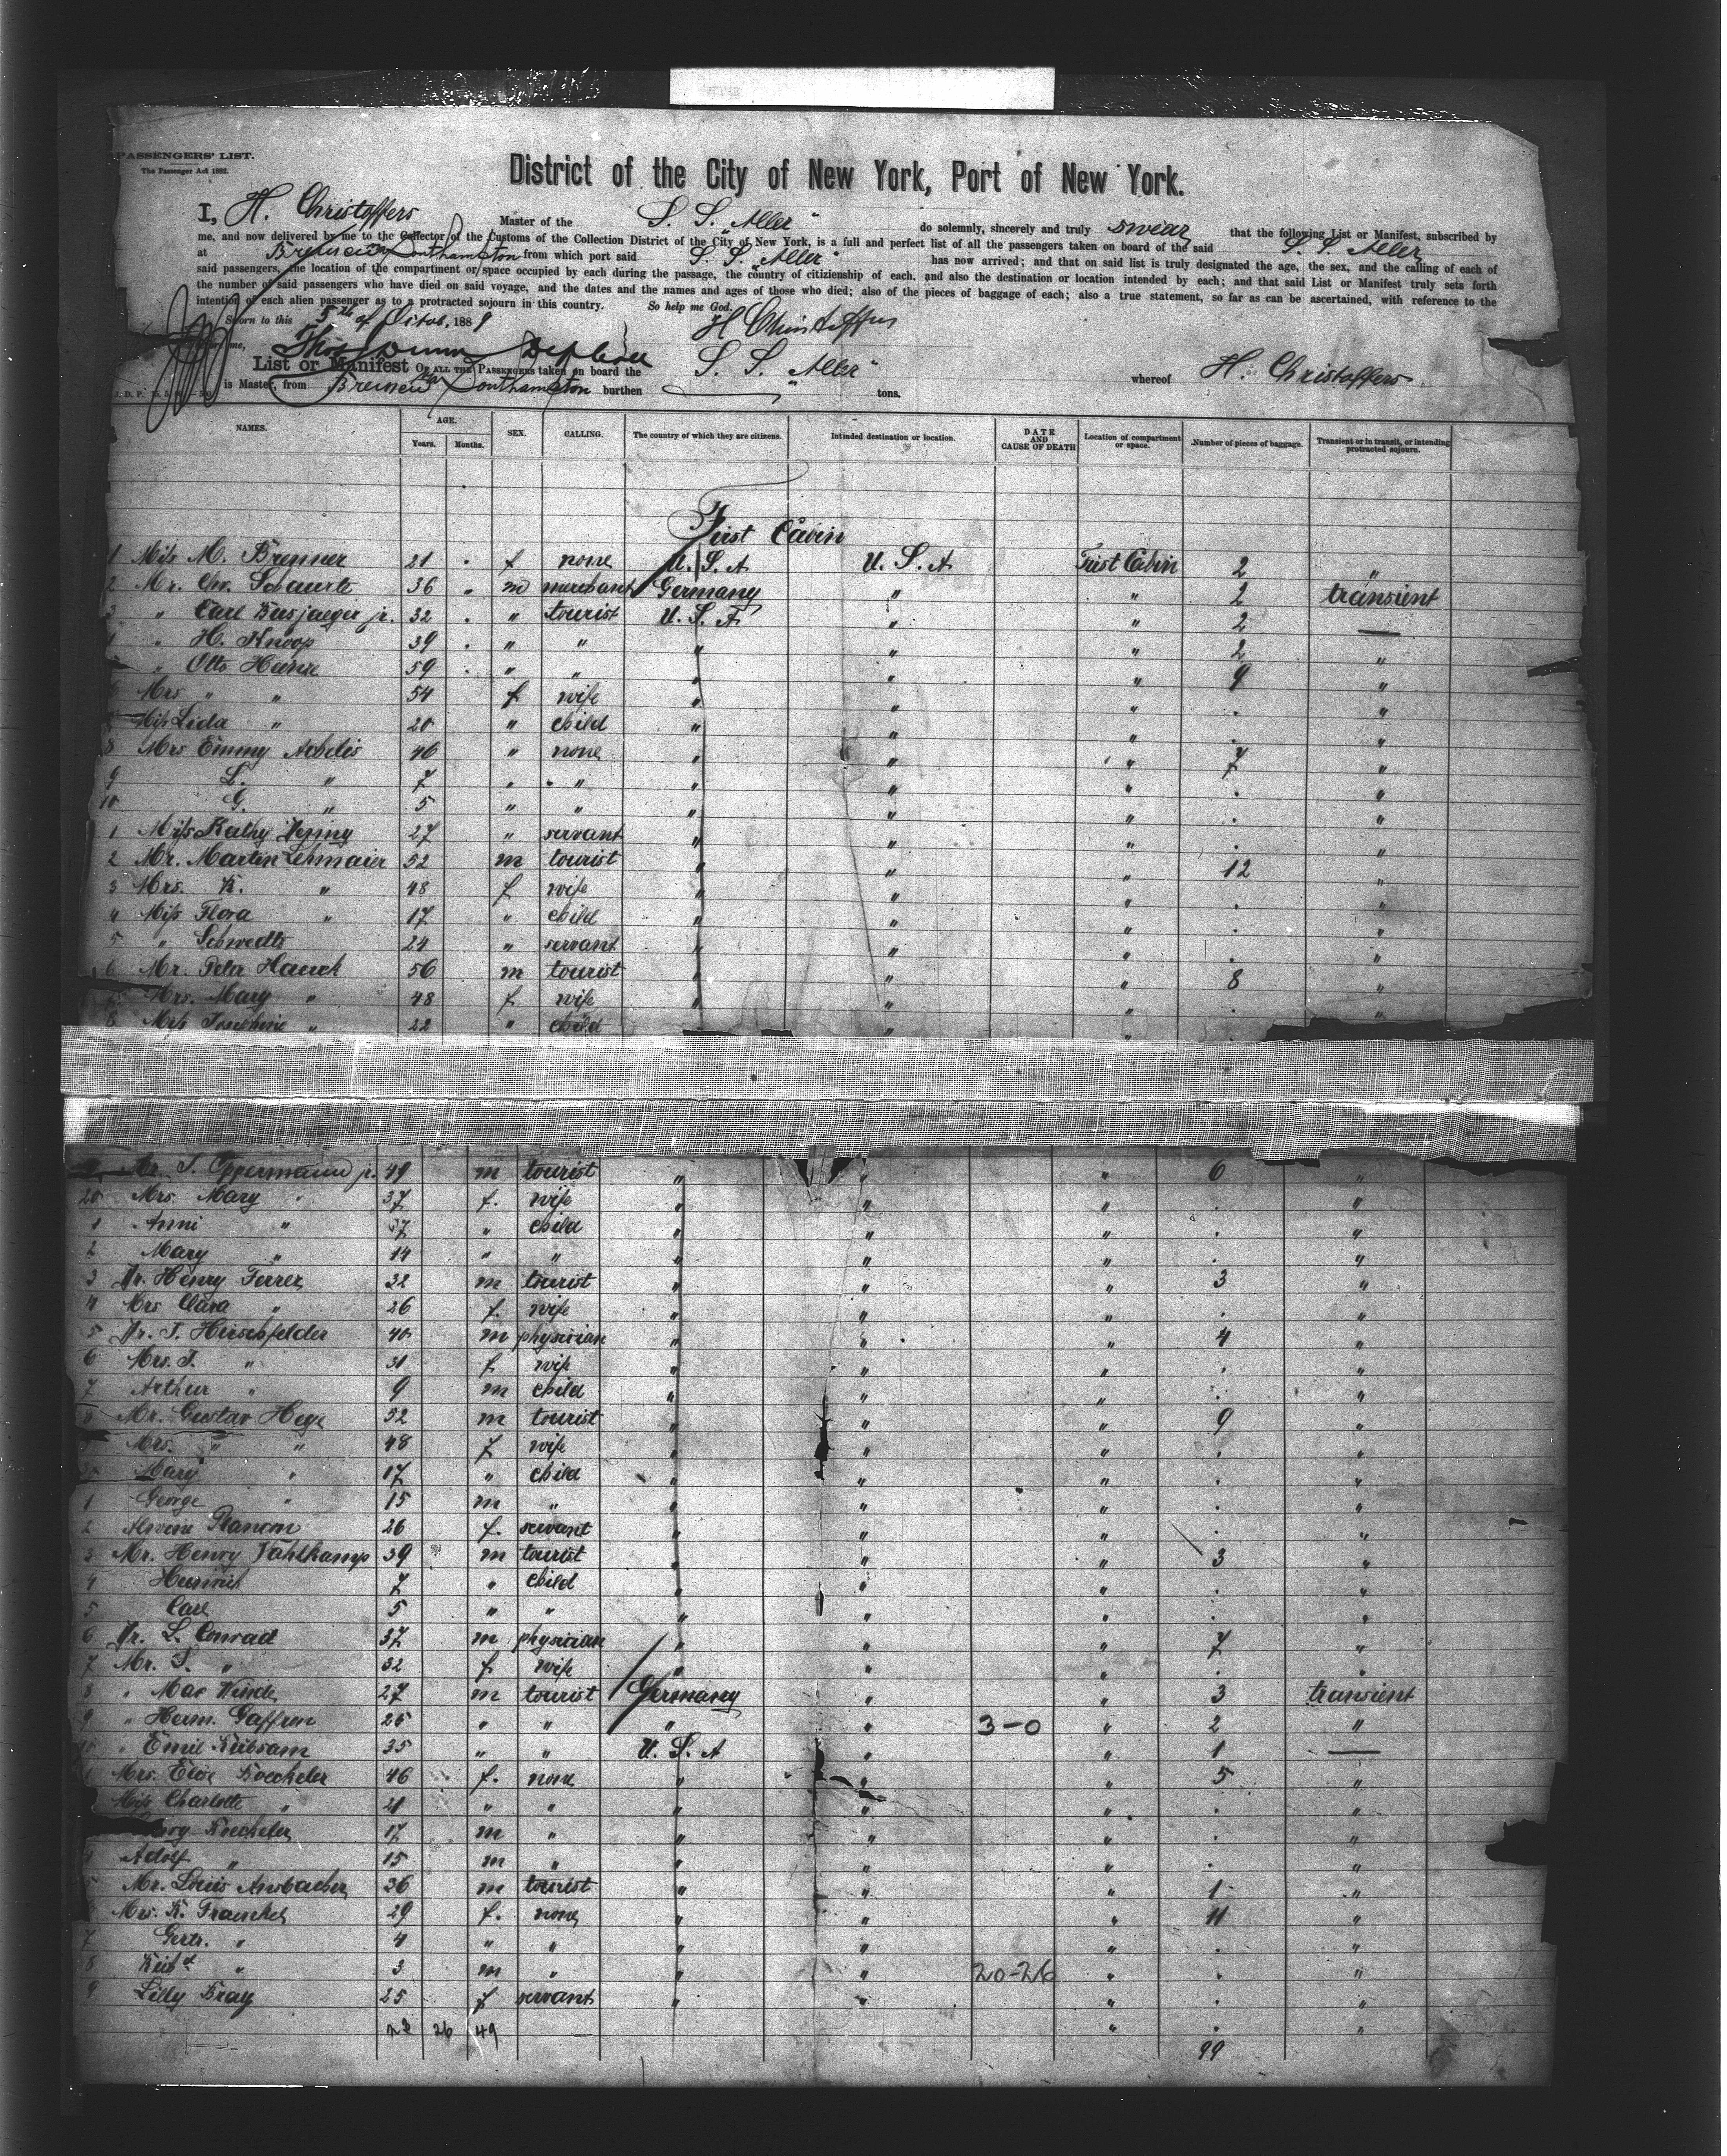 PASSENGERS' LIST.
The Passenger Act 1882.
District of the City of New York, Port of New York.
I, H. Christoffers Master of the S. S. "Aller" do solemnly, sincerely and truly swear that the following List or Manifest, subscribed by
me, and now delivered by me to the Collector of the Customs of the Collection District of the City of New York, is a full and perfect list of all the passengers taken on board of the said S. S. Aller
at Bremen & Southampton from which port said S. S. "Aller" has now arrived; and that on said list is truly designated the age, the sex, and the calling of each of
said passengers, the location of the compartment or space occupied by each during the passage, the country of citizienship of each, and also the destination or location intended by each; and that said List or Manifest truly sets forth
the number of said passengers who have died on said voyage, and the dates and the names and ages of those who died; also of the pieces of baggage of each; also a true statement, so far as can be ascertained, with reference to the
intention of each alien passenger as to a protracted sojourn in this country. So help me God.
Sworn to this 5th of Octob. 1889 H Christoffers
me,
List or Manifest OF ALL THE PASSENGERS taken on board the S. S. "Aller" whereof H. Christoffers
is Master, from Bremen Southampton burthen " tons.
NAMES. AGE. Years. Months. SEX. CALLING. The country of which they are citizens. Intended destination or location. DATE AND CAUSE OF DEATH Location of compartment or space. Number of pieces of baggage. Transient or in transit, or intending protracted sojourn.
First Cabin
1 Miss M. Brenner 21 f none U. S. A U. S. A First Cabin 2 "
2 Mr. Chr. Schaurte 36 m merchant Germany " " 2 transient
3 " Carl Busjaeger jr. 32 " tourist U. S. A " " 2 —
4 " H. Knoop 39 " " " " " 2 "
" Otto Heinze 59 " " " " " 9 "
6 Mrs " " 54 f wife " " " . "
Miss Lida " 20 " child " " " . "
8 Mrs Emmy Achelis 46 " none " " " 7 "
9 L. " 7 " " " " " . "
10 G. " 5 " " " " " . "
1 Miss Kathy 27 " servant " " " . "
2 Mr. Martin Lehmaier 52 m tourist " " " 12 "
3 Mrs. K. " 48 f wife " " " . "
4 Miss Flora " 17 " child " " " . "
5 " Schwedts 24 " servant " " " . "
6 Mr. Peter Hauck 56 m tourist " " " 8 "
Mrs. Mary " 48 f wife " " " . "
8 Miss Josephine " 22 " child " "
Mr. J. Oppermann jr. 49 m tourist " " " 6 "
20 Mrs. Mary " 37 f. wife " " " . "
1 Anni " " child " " " . "
2 Mary " 14 " " " " " . "
3 Dr. Henry Ferrer 32 m tourist " " " 3 "
4 Mrs Clara " 26 f. wife " " " . "
5 Dr. J. Hirschfelder 40 m physician " " " 4 "
6 Mrs. J. " 31 f wife " " " . "
7 Arthur " 9 m child " " " . "
8 Mr. Gustav Heye 52 m tourist " " " 9 "
Mrs. " " 48 f wife " " " . "
Mary " 17 " child " " " . "
1 George " 15 m " " " " . "
2 Alwine 26 f. servant " " " . "
3 Mr. Henry Vahlkamp 39 m tourist " " " 3 "
4 Heinrich 7 " child " " " . "
5 Carl 5 " " " " " . "
6 Dr. L. Conrad 37 m physician " " " 7 "
7 Mr. S. " 32 f wife " " " . "
8 " Max 27 m tourist Germany " " 3 transient
9 " Herm. Gaffron 25 " " " " 3-0 " 2 "
" Emil Rübsam 35 " " U. S. A " " 1 —
Mrs. Elise Boecheler 46 f. none " " " 5 "
Miss Charlotte " 21 " " " " " . "
Boecheler 17 m " " " " . "
Adolf " 15 m " " " " . "
5 Mr. Louis Ansbacher 36 m tourist " " " 1 "
Mrs. K. Fraenkel 29 f. none " " " 11 "
7 Gertr. " 4 " " " " " . "
8 " 3 m " " " 20-26 " . "
9 Lilly Bray 25 f servant " " " . "
26 49 " . "
99